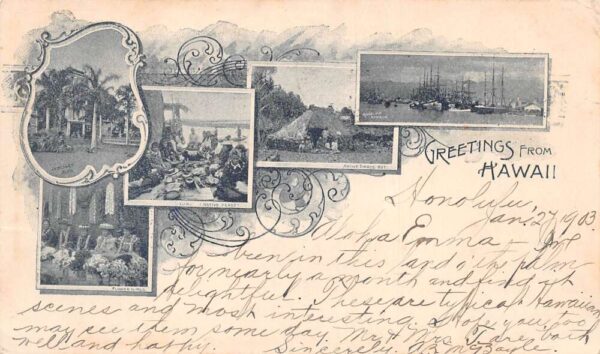 GREETINGS FROM
HAWAII
LUAU (NATIVE FEAST)
NATIVE GRASS HUT
Honolulu,
Jan. 27, 1903.
Aloha Emma - 
been in this land of the palm
for nearly a month and find it
delightful. These are typical Hawaiian
scenes and most interesting. Hope you, too,
may see them some day. Mr & Mrs F are both
well and happy. Sincerely,